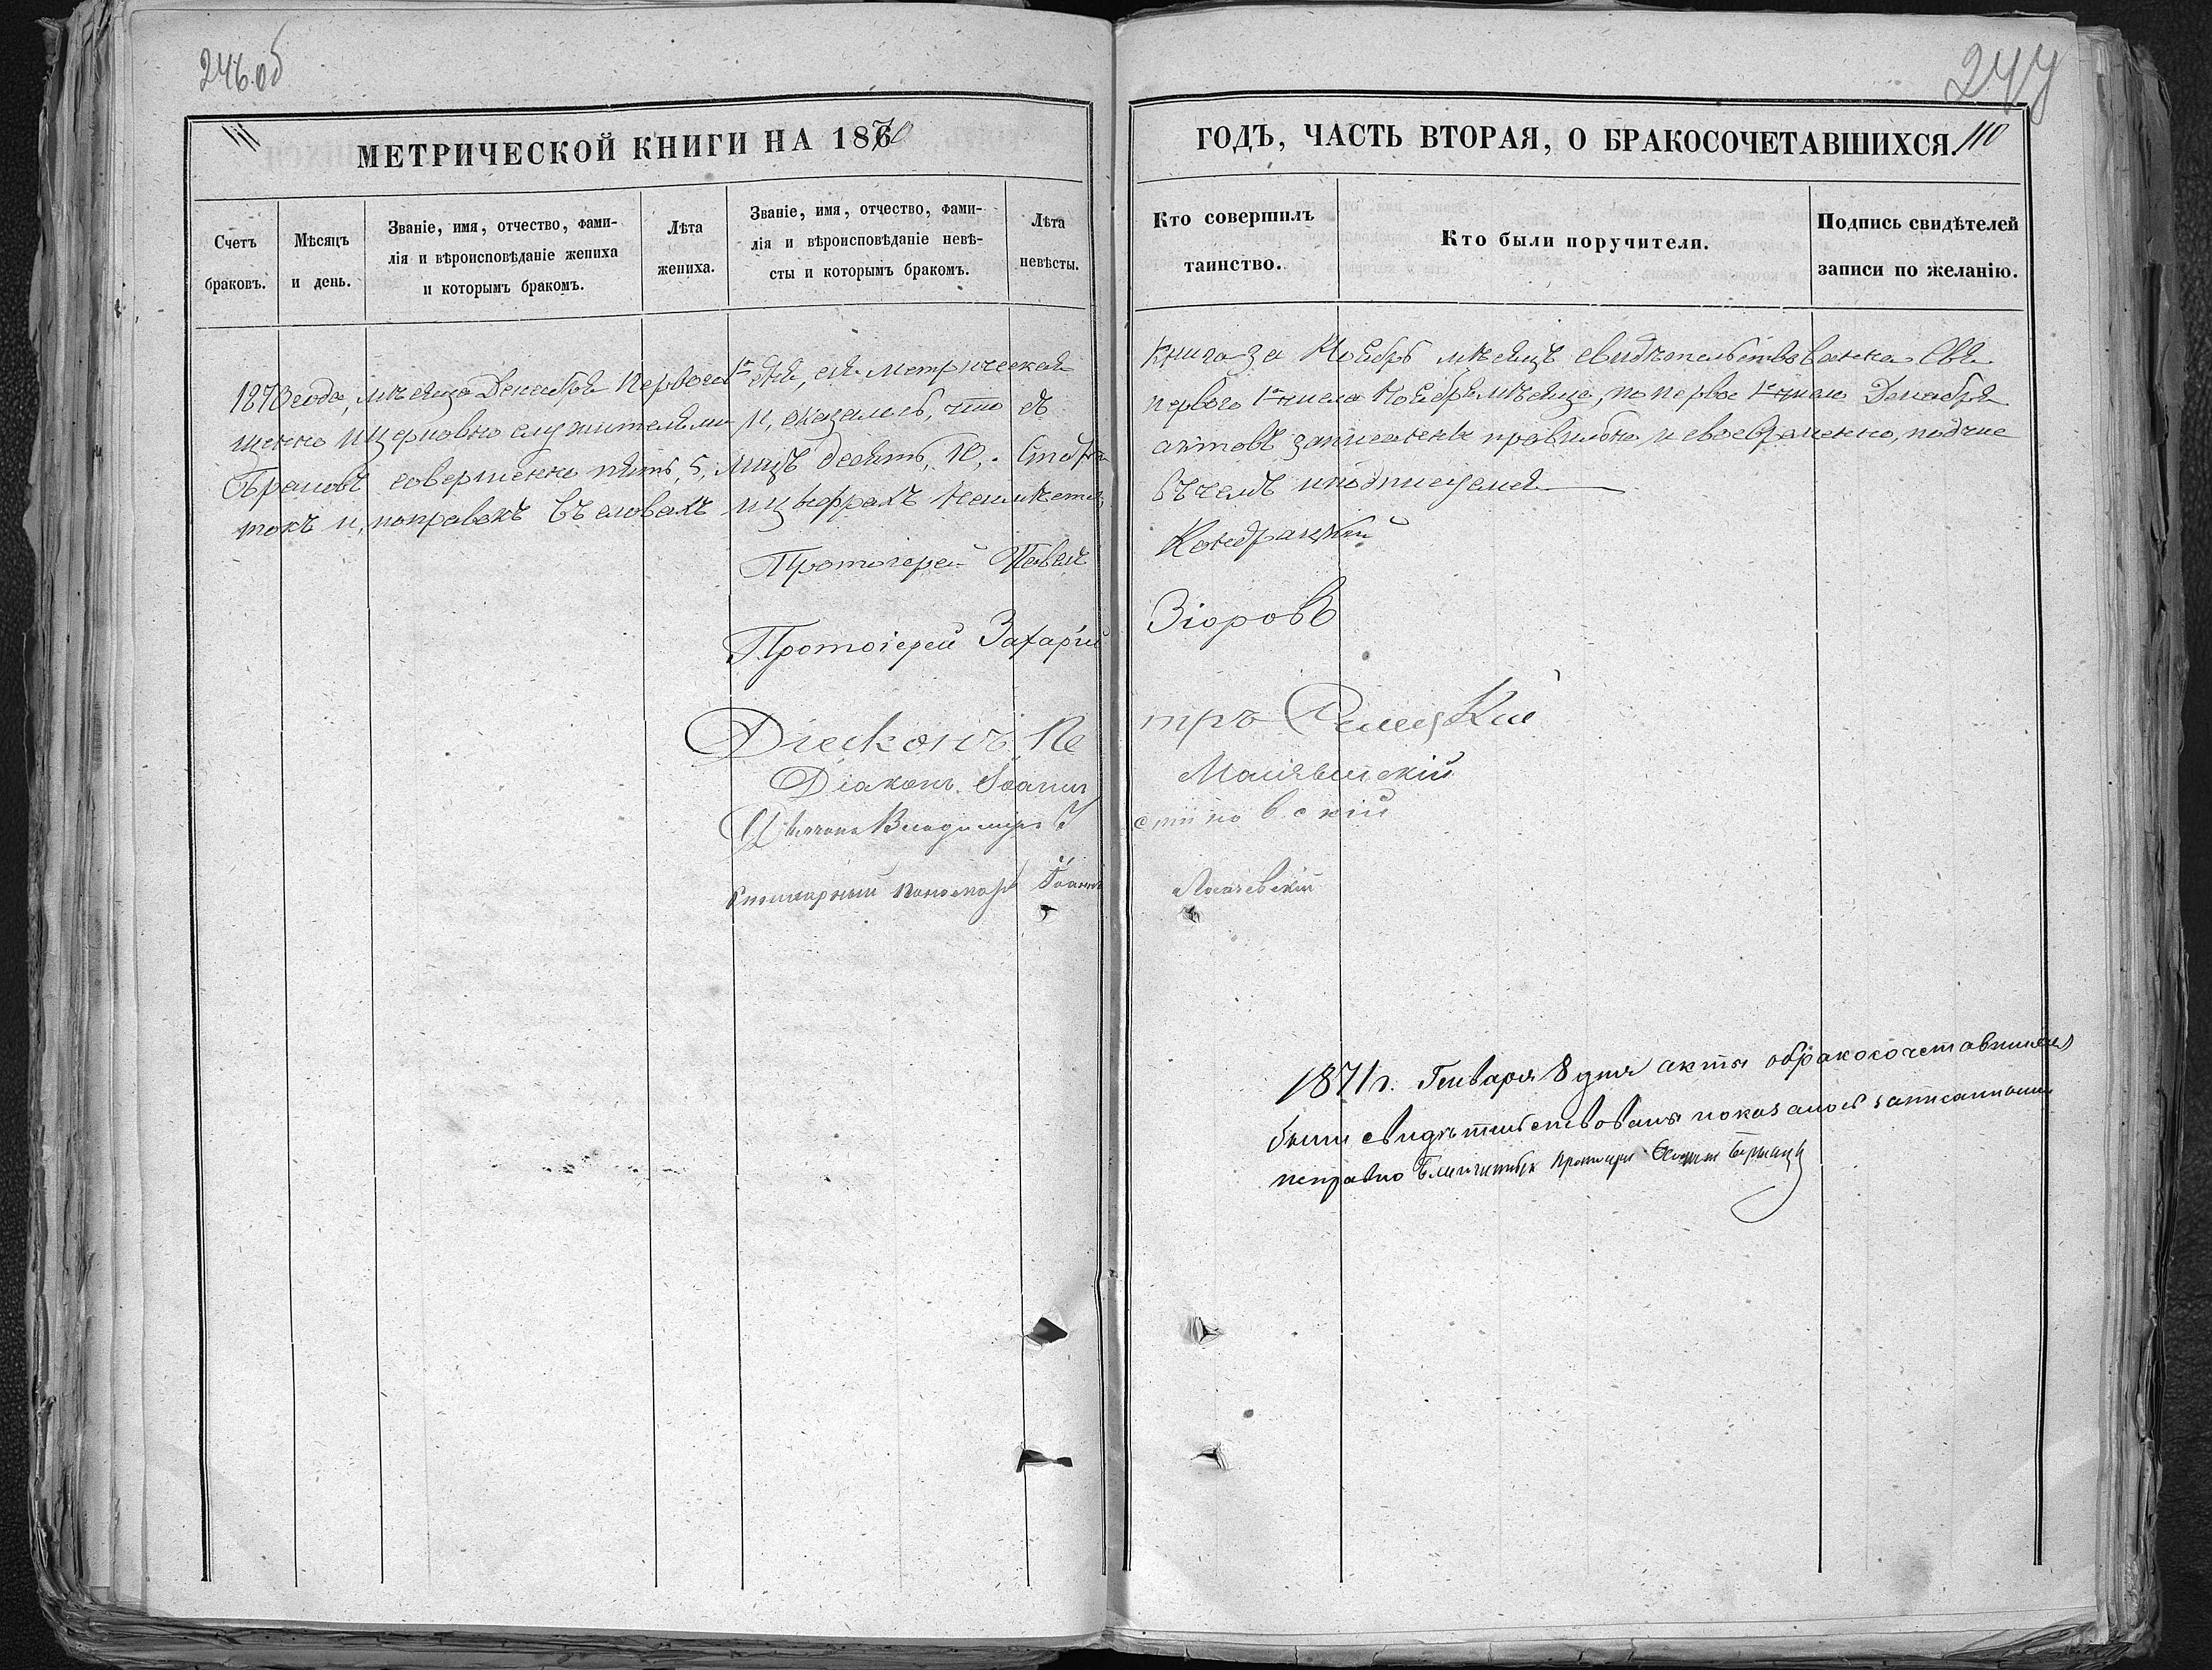 246 об
247
МЕТРИЧЕСКОЙ КНИГИ НА 1870
ГОДЪ, ЧАСТЬ ВТОРАЯ, О БРАКОСОЧЕТАВШИХСЯ. 110
Счетъ
браковъ.
Мѣсяцъ
и день.
Званіе, имя, отчество, фами-
лія и вѣроисповѣданіе жениха
и которымъ бракомъ.
Лѣта
жениха.
Званіе, имя, отчество, фами-
лія и вѣроисповѣданіе невѣ-
сты и которымъ бракомъ.
Лѣта
невѣсты.
Кто совершилъ
таинство.
Кто были поручители.
Подпись свидѣтелей
записи по желанію.
1870 года, мѣсяца Декабря Перваго 1го дня, сія метрическая книга за Ноябрь мѣсяцъ свидѣтельствованна Свя
щенно и церковно служителями и, оказалось, что съ перваго 1 числа Ноября мѣсяца, по первое 1 число Декабря
Браковъ совершенно пять, 5, лицъ десять, 10,. актовъ записанны правильно и своевременно, подчис
токъ и, поправокъ въ словахъ и цыфрахъ неимѣется, въ чемъ и подписуемся
Протоіерей Павелъ
Протоіерей Захарій Зіоровъ
Діаконъ Петръ
Діаконъ Іоаннъ
Владиміръ
Пономарь Іоаннъ
1871 г. Генваря 8 дня акты о бракосочетавшихся
были свидѣтельствованы и оказались записанными
исправно Благочинный Протоіерей